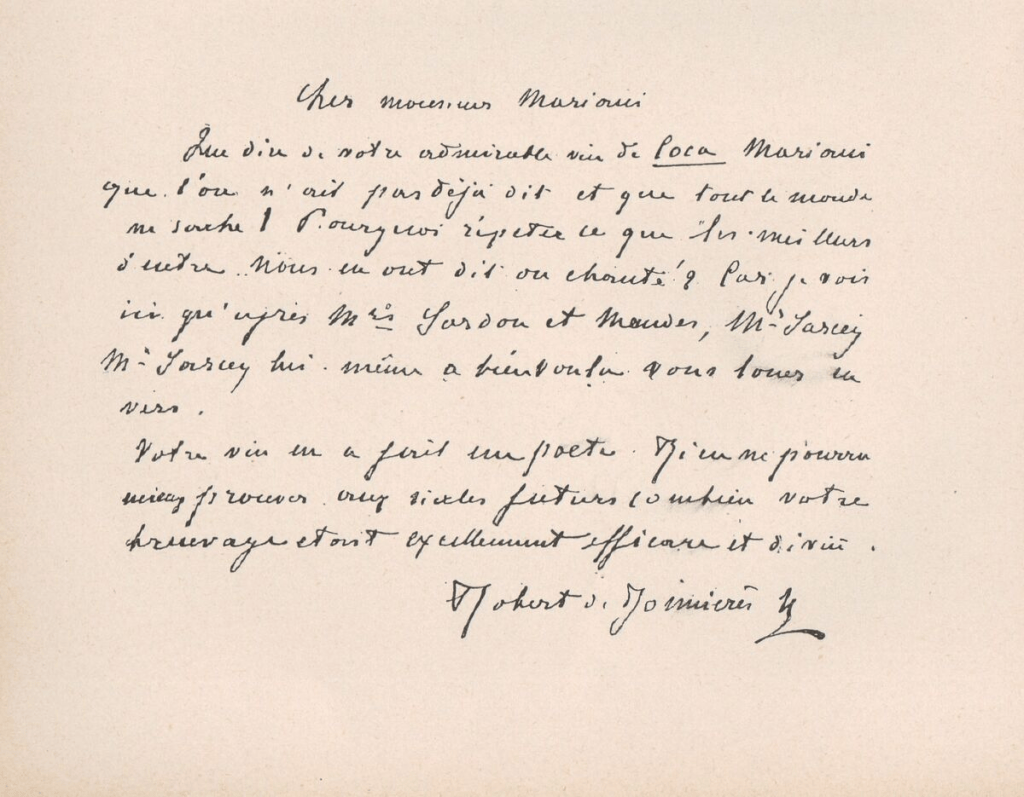 Cher monsieur Mariani
Que dire de votre admirable vin de Coca Mariani
que l'on n'ait pas déjà dit et que tout le monde
ne sache ! Pourquoi répéter ce que les meilleurs
d'entre Nous en ont dit ou chanté ? Car je vois
ici qu'après Mrs Sardou et Mendes, Mr Sarcey
Mr Sarcey lui-même a bien voulu vous louer en
vers.
Votre vin en a fait un poete. Rien ne pourra
mieux prouver aux siecles futurs combien votre
breuvage etait excellemment efficace et divin.
Robert de Bonnières